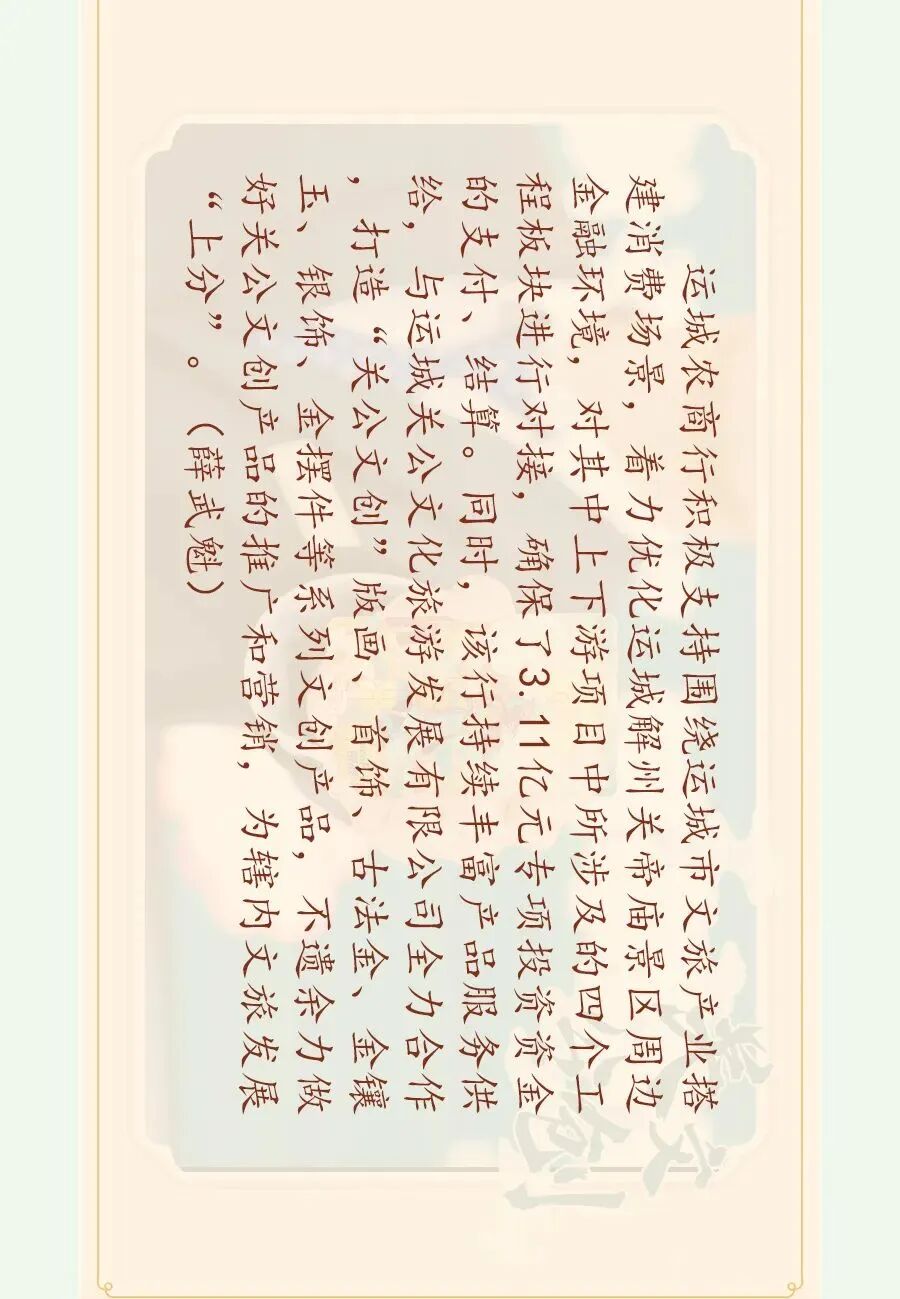 运城农商行积极支持围绕运城市文旅产业搭
建消费场景，着力优化运城解州关帝庙景区周边
金融环境，对其中上下游项目中所涉及的四个工
程板块进行对接，确保了3.11亿元专项投资资金
的支付、结算。同时，该行持续丰富产品服务供
给，与运城关公文化旅游发展有限公司全力合作
，打造“关公文创”版画、首饰、古法金、金镶
玉、银饰、金摆件等系列文创产品，不遗余力做
好关公文创产品的推广和营销，为辖内文旅发展
“上分”。（薛武魁）
文创